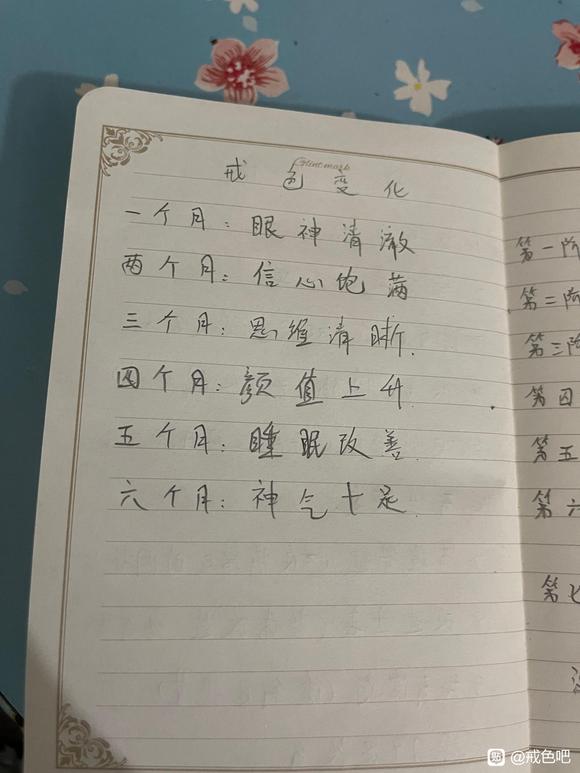 Glint mark
戒色变化
一个月：眼神清澈
两个月：信心饱满
三个月：思维清晰.
四个月：颜值上升.
五个月：睡眠改善.
六个月：神气十足.
第一阶
第二阶
第三阶
第四
第五
第六
第七
@戒色吧